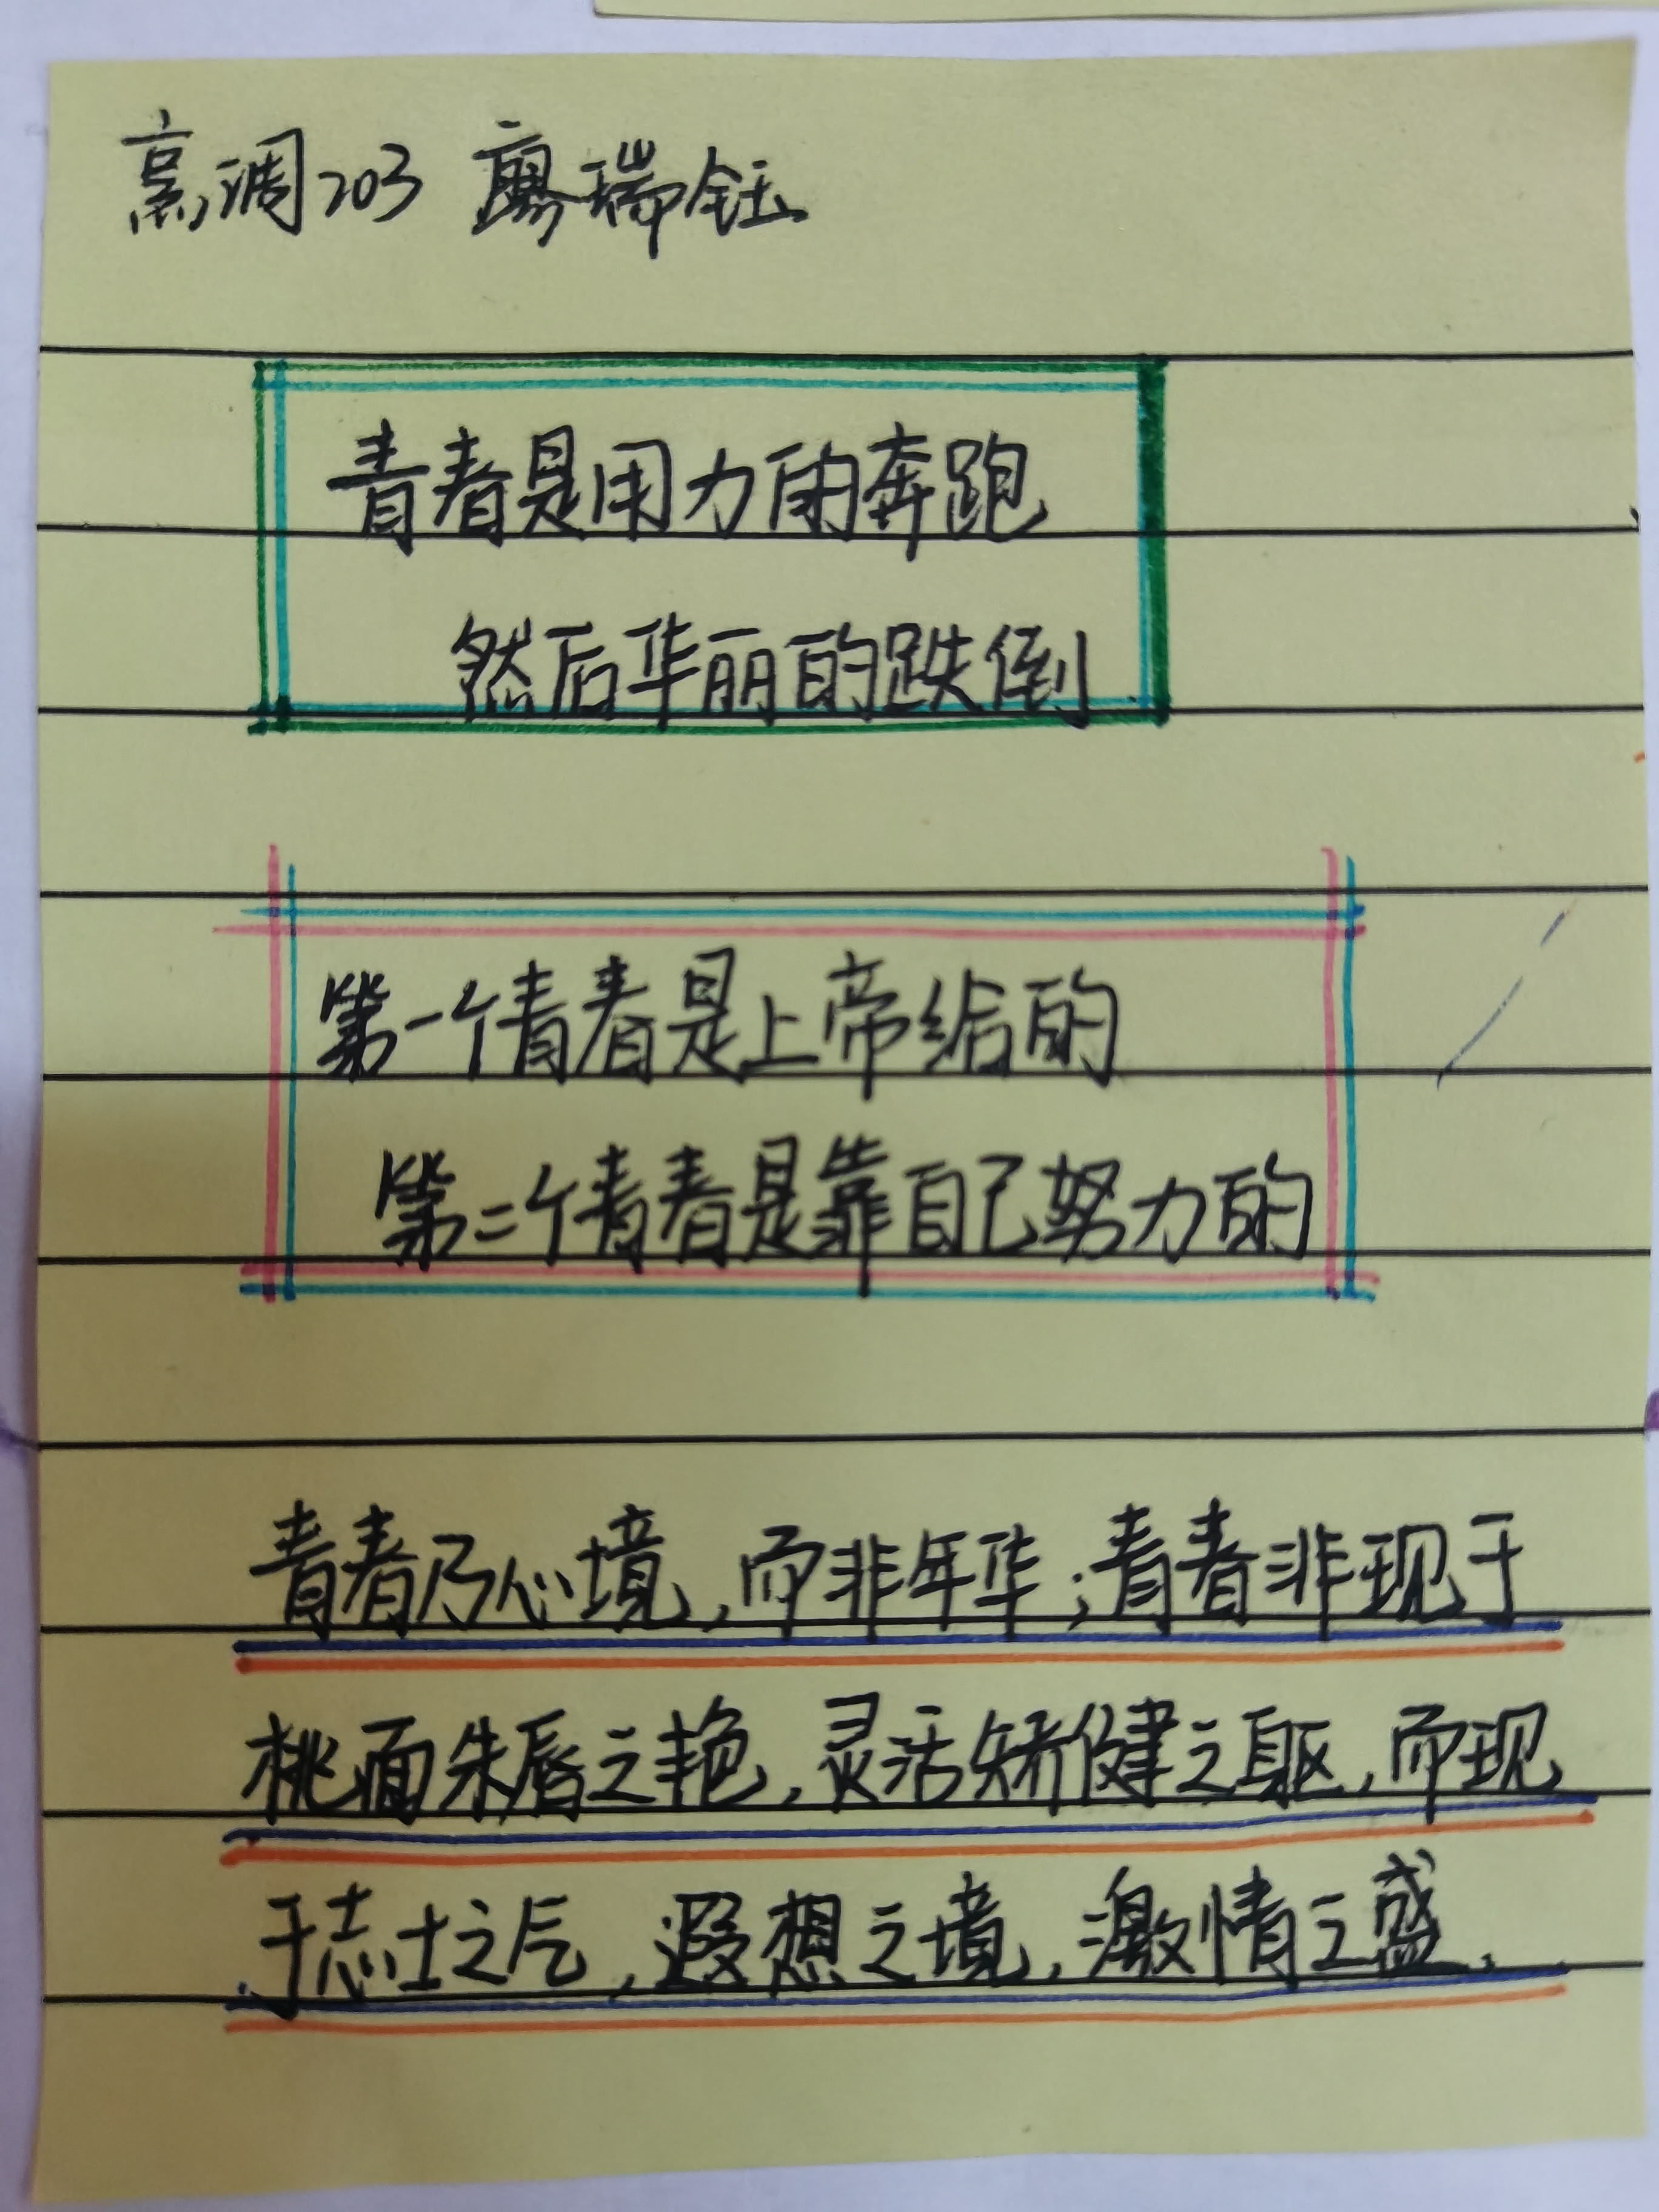 烹调203 廖瑞钰
青春是用力的奔跑
然后华丽的跌倒
第一个青春是上帝给的
第二个青春是靠自己努力的
青春乃心境,而非年华;青春非现于
桃面朱唇之艳,灵活矫健之躯,而现
于志士之气,遐想之境,激情之盛,